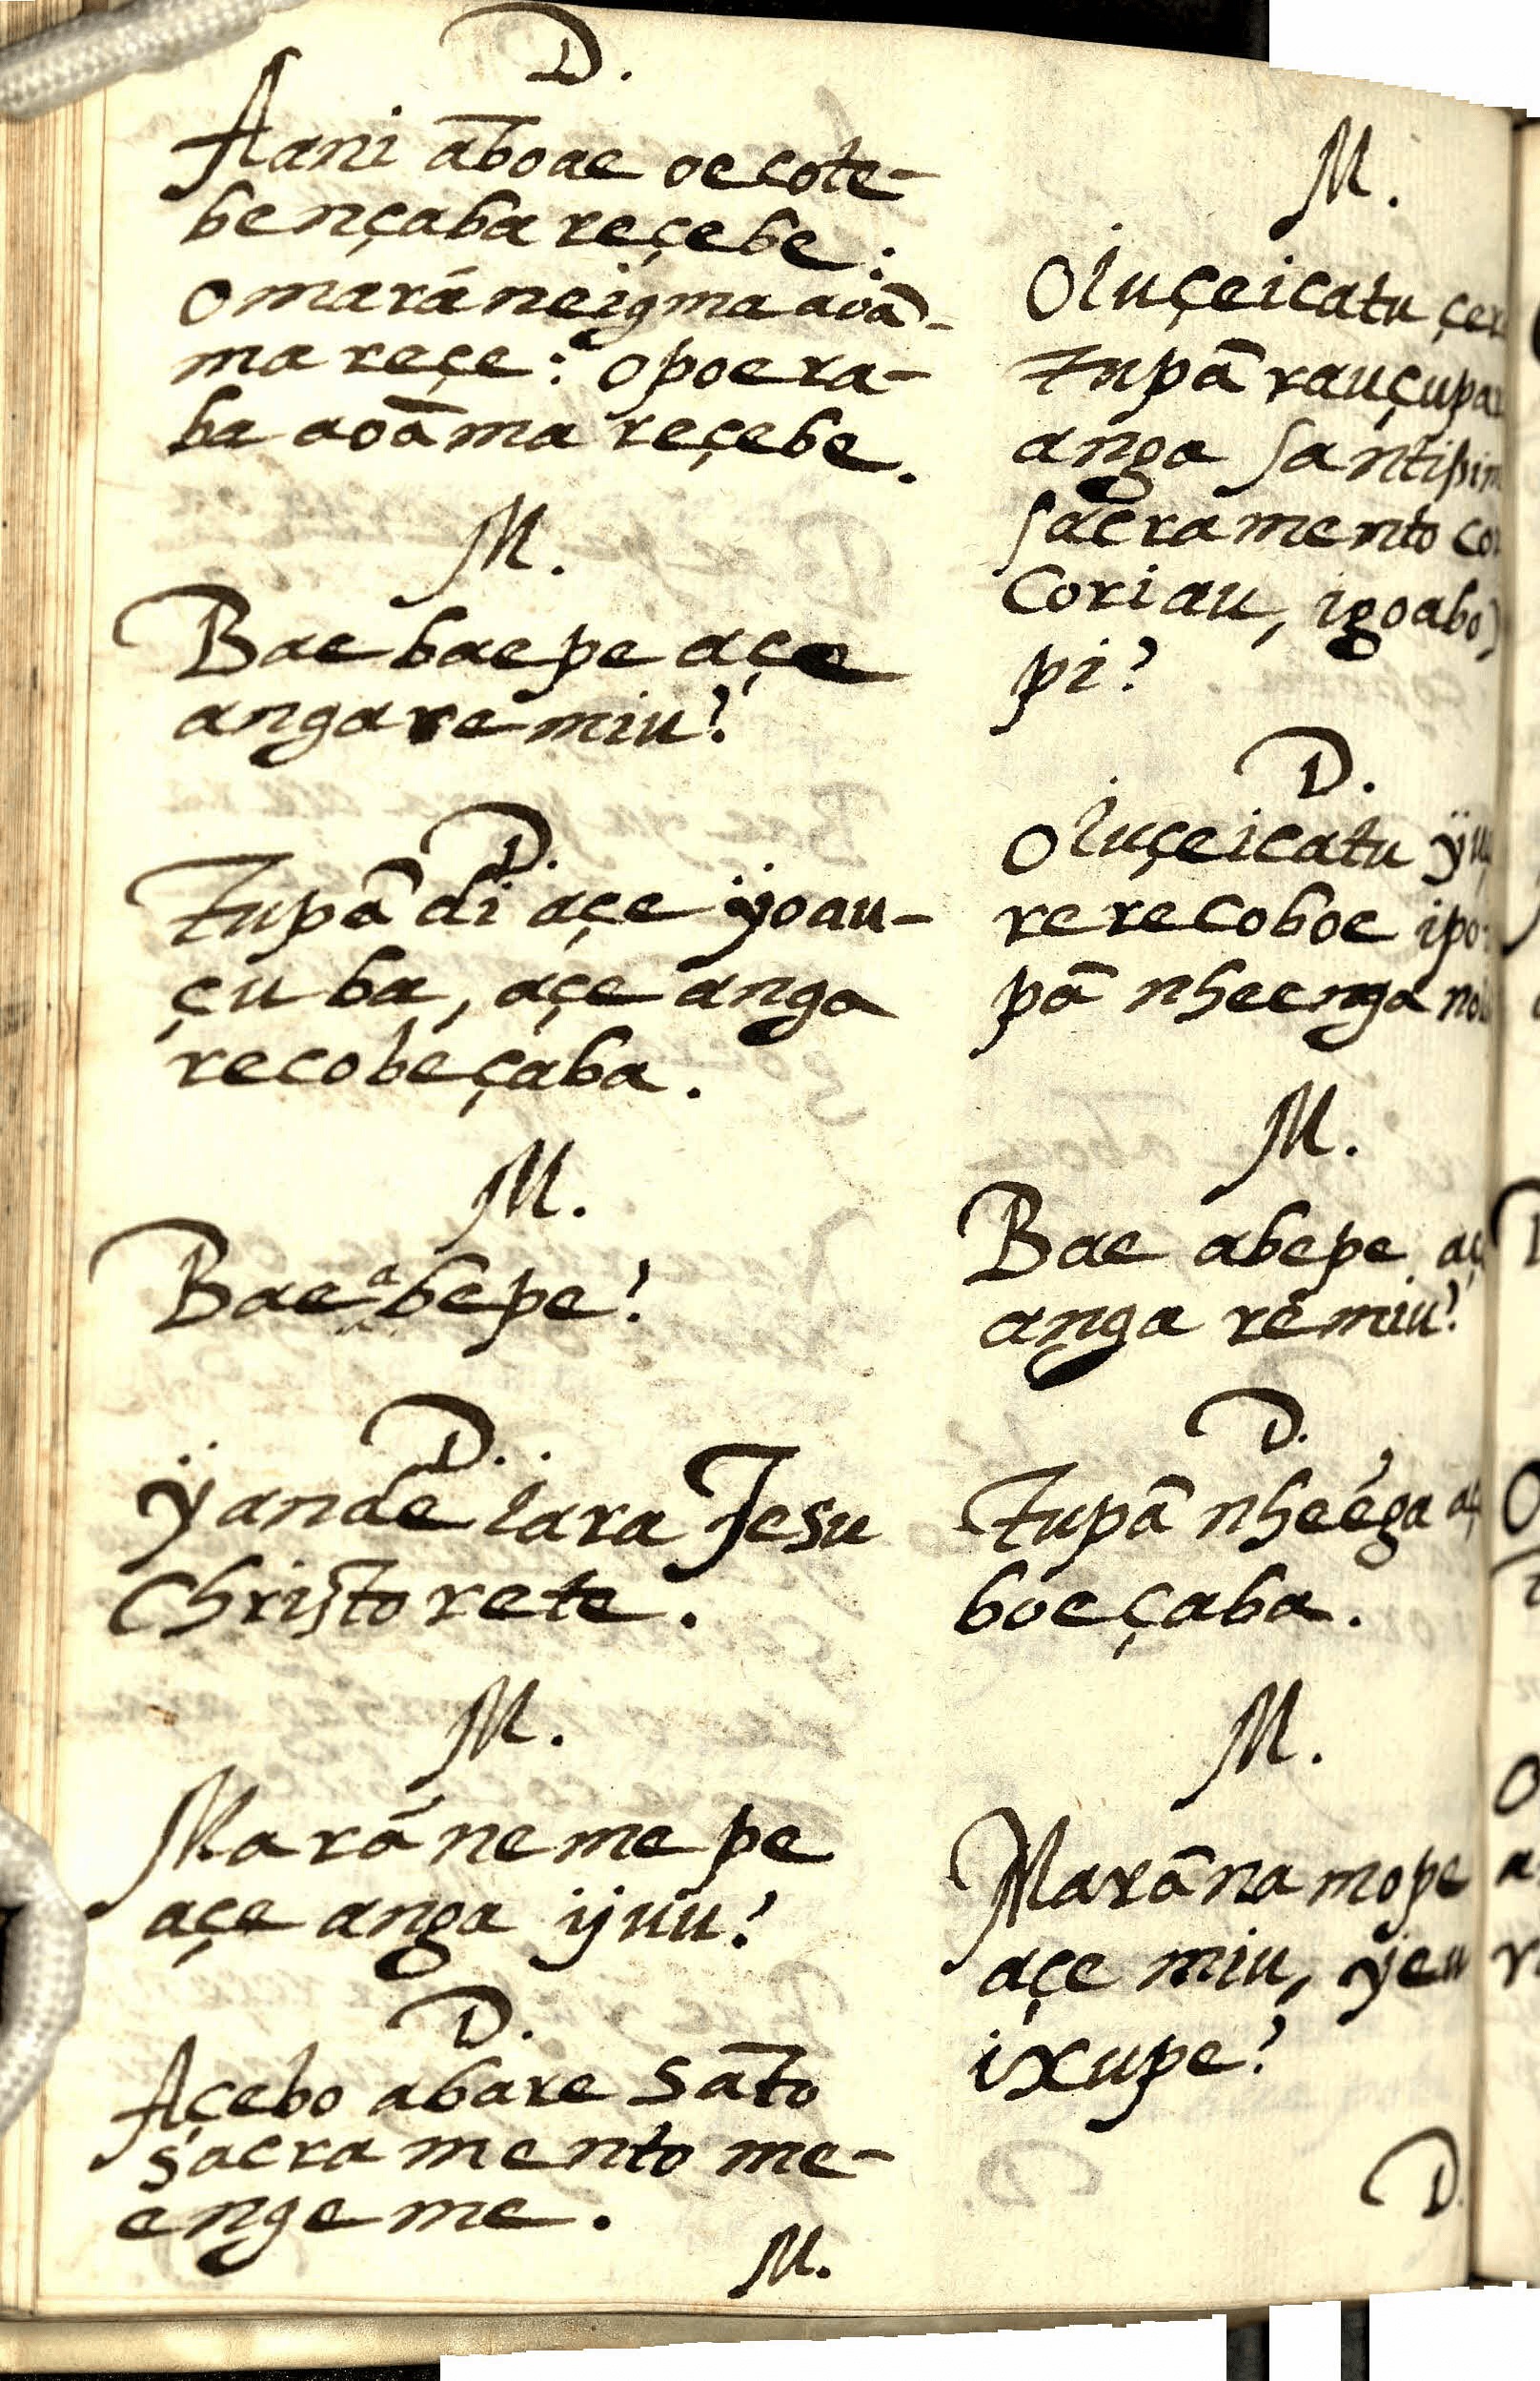 D.
Aani āboae oecote-
bençaba reçebe:
omarãneigma aoã-
ma reçe: opoera-
ba aoãma reçebe.
M.
Bae baepe açe
angaremiu?
D.
Tupã di açe ÿoau-
çuba, açe anga
recobeçaba.
M.
Bae abepe?
D.
Ÿande iara Jesu
Christo rete.
M.
Marã neme pe
açe anga ijuu?
D.
Açebo abare Sāto
sacramento me-
engeme.
M.
M.
Oiuçeicatu
Tupã
anga
Sacramento
Coriau,
pi?
D.
Oiuçeicatu
rerecoboe
pã nheenga
M.
Bae abepe
anga remiu?
D.
Tupã nheéga
boeçaba.
M.
Marãnamope
açe miu,
ixupe?
D.